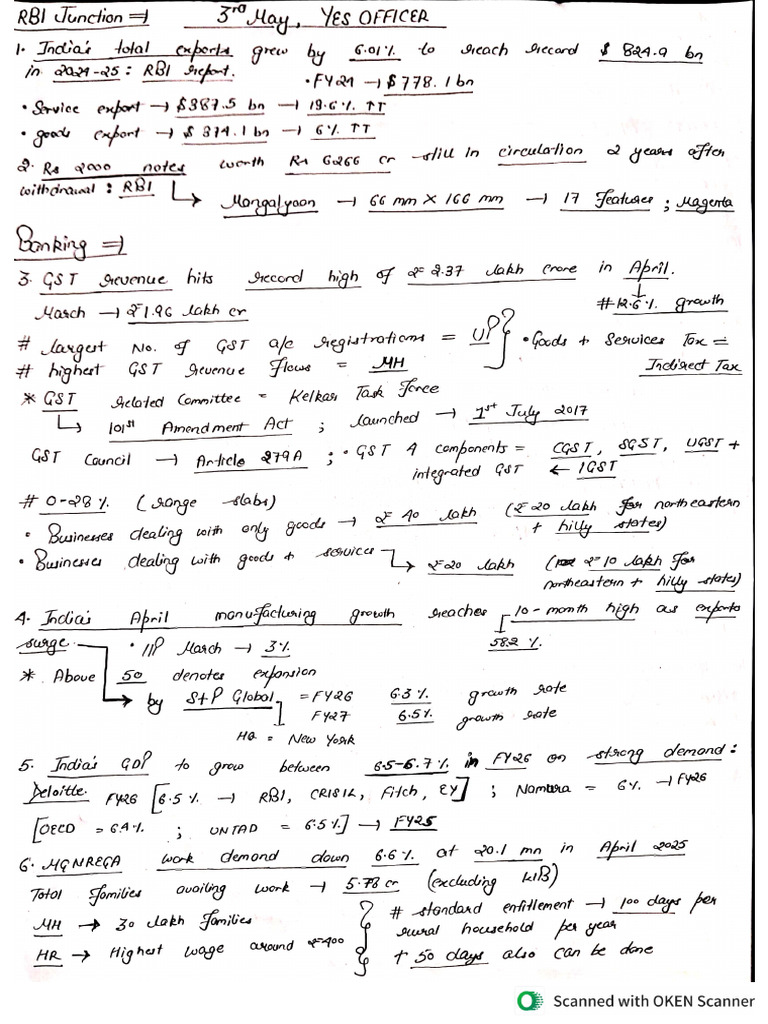 RBI Junction ⇒ 3rd May, YES OFFICER
1. India's total exports grew by 6.01% to reach record $ 824.9 bn
in 2024-25 : RBI report. • FY24 → $778.1 bn
• Service export → $387.5 bn → 13.6% ↑↑
• goods export → $ 374.1 bn → 6% ↑↑
2. Rs 2000 notes worth Rs 6266 cr still in circulation 2 years after
withdrawal : RBI
↳ Mangalyaan → 66 mm × 166 mm → 17 Features ; Magenta
Banking ⇒
3. GST revenue hits record high of ₹ 2.37 lakh crore in April.
March → ₹1.96 lakh cr # 12.6% growth
# largest No. of GST a/c registrations = UP • Goods + Services Tax =
# highest GST Revenue Flows = MH Indirect Tax
* GST related Committee = Kelkar Task Force
↳ 101st Amendment Act ; launched → 1st July 2017
GST Council → Article 279A ; • GST 4 components = CGST, SGST, UGST +
integrated GST ← IGST
# 0-28% (range slabs)
• Businesses dealing with only goods → ₹ 40 lakh (₹20 lakh for northeastern
+ hilly states)
• Businesses dealing with goods + services ↳ ₹20 lakh (₹10 lakh for
northeastern + hilly states)
4. India's April manufacturing growth reaches 10-month high as exports
surge. • IIP March → 3% 58.2 %.
* Above 50 denotes expansion
→ by S+P Global = FY26 6.3% growth rate
FY27 6.5% growth rate
HQ = New York
5. India's GDP to grow between 6.5-6.7% in FY26 on strong demand :
Deloitte. FY26 [6.5% → RBI, CRISIL, Fitch, EY] ; Nomura = 6% → FY26
[OECD = 6.4% ; UNTAD = 6.5%] → FY25
6. MGNREGA work demand down 6.6% at 20.1 mn in April 2025
Total Families availing work → 5.78 cr (excluding WB)
MH → 30 lakh Families # standard entitlement → 100 days per
rural household per year
HR → Highest wage around ₹400 + 50 days also can be done
Scanned with OKEN Scanner